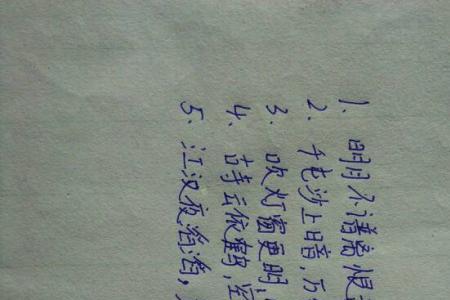 1. 明月不谙离恨
2. 千屯沙上暗,历
3. 吹灯窗更明,
4. 诗云依鹤,空
5. 江汉夜滔滔,